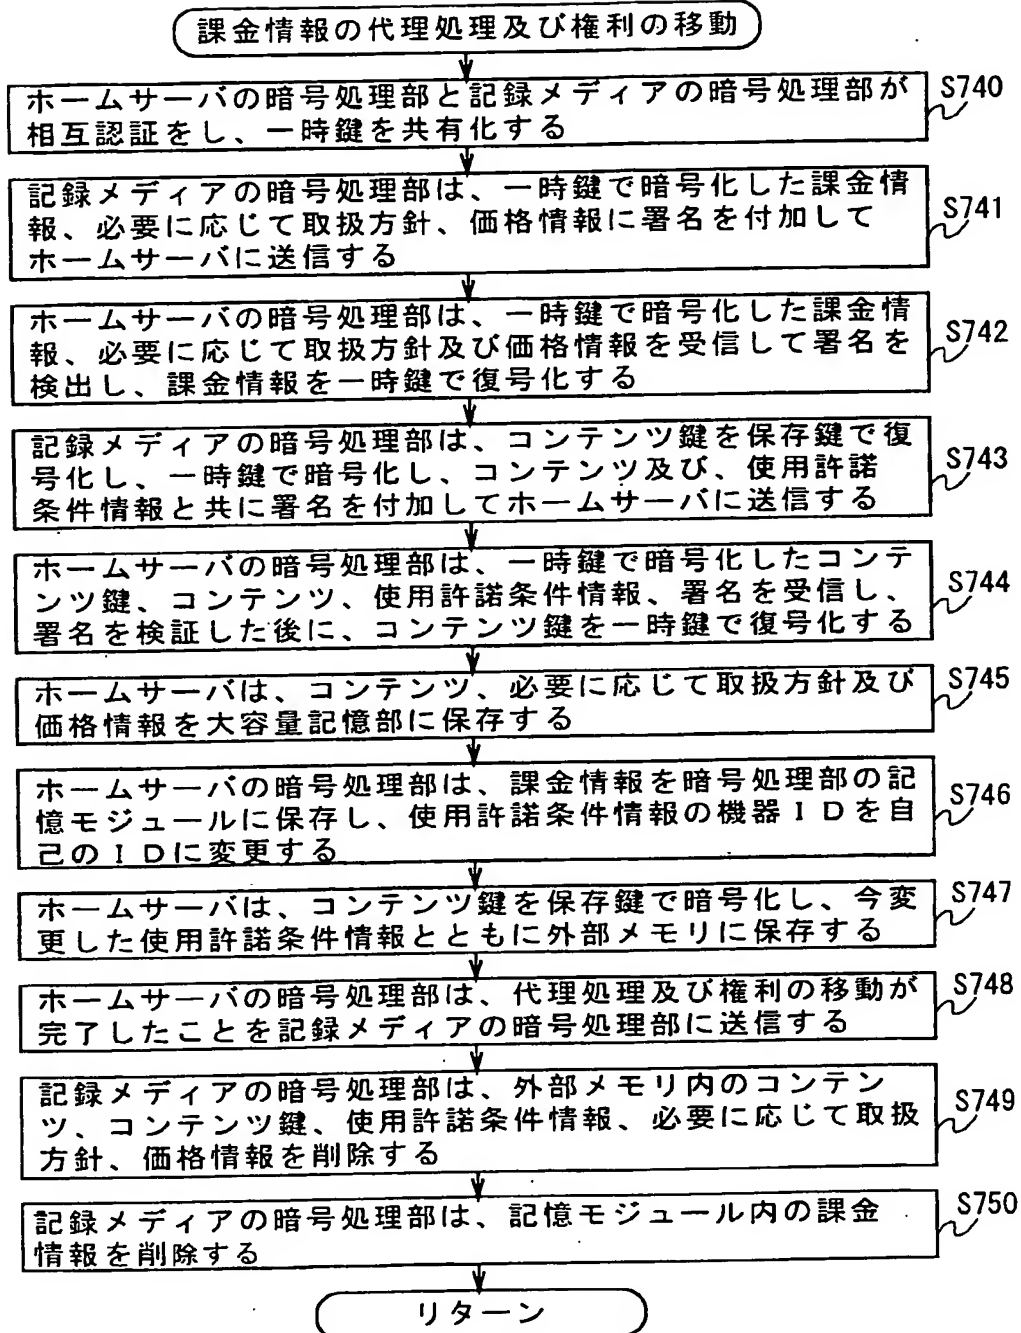 課金情報の代理処理及び権利の移動
ホームサーバの暗号処理部と記録メディアの暗号処理部が
相互認証をし、一時鍵を共有化する
S740
記録メディアの暗号処理部は、一時鍵で暗号化した課金情
報、必要に応じて取扱方針、価格情報に署名を付加して
ホームサーバに送信する
S741
ホームサーバの暗号処理部は、一時鍵で暗号化した課金情
報、必要に応じて取扱方針及び価格情報を受信して署名を
検出し、課金情報を一時鍵で復号化する
S742
記録メディアの暗号処理部は、コンテンツ鍵を保存鍵で復
号化し、一時鍵で暗号化し、コンテンツ及び、使用許諾
条件情報と共に署名を付加してホームサーバに送信する
S743
ホームサーバの暗号処理部は、一時鍵で暗号化したコンテ
ンツ鍵、コンテンツ、使用許諾条件情報、署名を受信し、
署名を検証した後に、コンテンツ鍵を一時鍵で復号化する
S744
ホームサーバは、コンテンツ、必要に応じて取扱方針及び
価格情報を大容量記憶部に保存する
S745
ホームサーバの暗号処理部は、課金情報を暗号処理部の記
憶モジュールに保存し、使用許諾条件情報の機器IDを自
己のIDに変更する
S746
ホームサーバは、コンテンツ鍵を保存鍵で暗号化し、今変
更した使用許諾条件情報とともに外部メモリに保存する
S747
ホームサーバの暗号処理部は、代理処理及び権利の移動が
完了したことを記録メディアの暗号処理部に送信する
S748
記録メディアの暗号処理部は、外部メモリ内のコンテン
ツ、コンテンツ鍵、使用許諾条件情報、必要に応じて取扱
方針、価格情報を削除する
S749
記録メディアの暗号処理部は、記憶モジュール内の課金
情報を削除する
S750
リターン